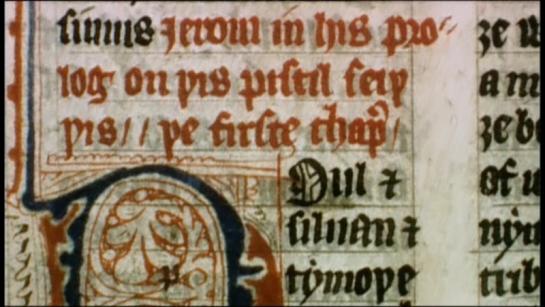 Jerom in his pro⸗
log on þis pistil seiþ
þis// þe firste chap̃/
Oul ⁊
siluan ⁊
tymoþe
ȝe
a m
ȝe be
of
trib